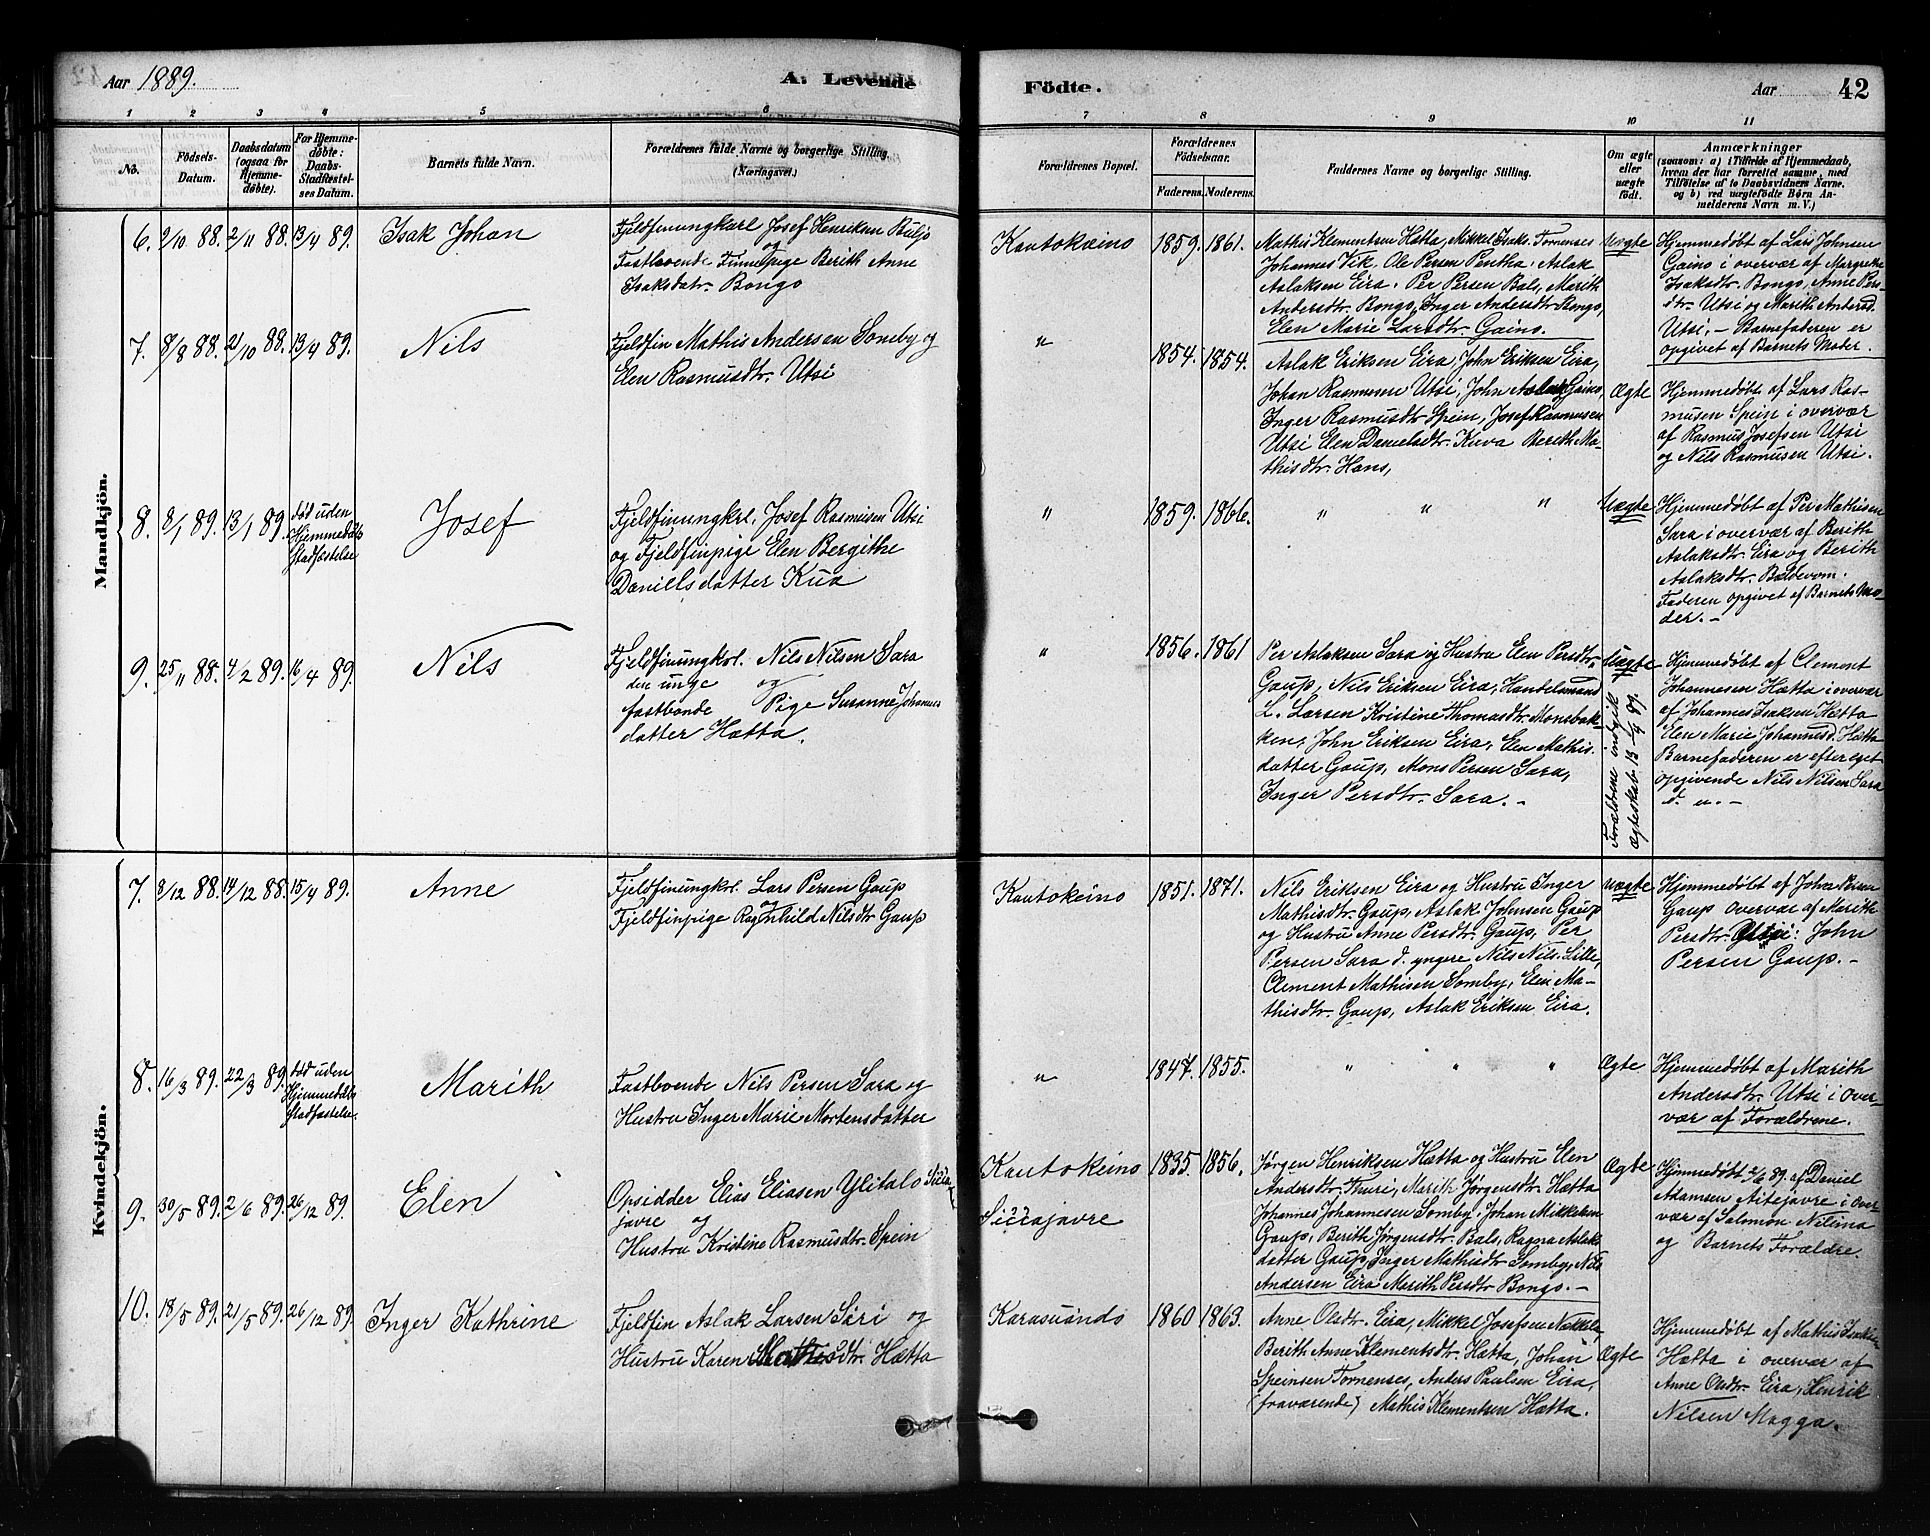 Aar 1889.
A. Levende
Födte.
Aar
42
1 2 3 4 5 6 7 8 9 10 11
No.
Födsels-
Datum.
Daabsdatum
(ogsaa for
Hjemme-
döbte).
For Hjemme-
döbte:
Daabs-
Stadfæstel-
ses Datum.
Barnets fulde Navn.
Forældrenes fulde Navne og borgerlige Stilling.
(Næringsvei.)
Forældrenes Bopæl.
Forældrenes
Födselsaar.
Faderens.
Moderens.
Faddernes Navne og borgerlige Stilling.
Om ægte
eller
uægte
födt.
Anmærkninger
(saasom: a) i Tilfælde af Hjemmedaab,
hvem der har forrettet samme, med
Tilföielse af to Daabsvidners Navne.
og b) ved uægtefödte Börn An-
melderens Navn m. V.)
Mandkjön.
6. 9/10 88. 2/11 88. 13/4 89.
Isak Johan
Fjeldfinungkarl Josef Henriksen Buljo
og
Fastboende Finnepige Berith Anne
Isaksdatr. Bongo
Kautokeino
1859. 1861.
Mathis Klementsen Hætta, Mikkel Isaks. Tornenses
Johannes Vik. Ole Persen Pentha. Aslak
Aslaksen Eira. Per Persen Bals, Marith
Andersdt. Bongo, Inger Andersdtr. Bongo,
Elen Marie Larsdtr. Gaino.
Uægte
Hjemmedøbt af Lars Johnsen
Gaino i overvær af Margrethe
Isaksdt. Bongo, Anne Pers-
dtr. Utsi og Marith Andersd.
Utsi. – Barnefaderen er
opgivet af Barnets Moder.
7. 8/8 88. 21/10 88. 13/4 89.
Nils
Fjeldfin Mathis Andersen Somby og
Elen Rasmusdtr. Utsi
"
1854. 1854.
Aslak Eriksen Eira, John Eriksen Eira,
Johan Rasmusen Utsi, John Aslaks Gaino,
Inger Rasmusdtr. Spein, Josef Rasmusen
Utsi Elen Danielsdtr. Kuva Berith Ma-
thisdtr. Hans,
Ægte
Hjemmedøbt af Lars Ras-
musen Spein i overvær
af Rasmus Josefsen Utsi
og Nils Rasmusen Utsi.
8. 8/1 89. 13/1 89.
død uden
Hjemmedåb
Stadfæstelse
Josef
Fjeldfinungkrl. Josef Rasmusen Utsi
og Fjeldfinpige Elen Bergithe
Daniells datter Kua
"
1859. 1866.
" " "
Uægte
Hjemmedøbt af Per Mathisen
Sara i overvær af Berith
Aslaksdtr. Eira og Berith
Aslaksdtr. Baldevom.
Faderen opgivet af Barnets Mo-
der. –
9. 25/11 88. 4/2 89. 16/4 89.
Nils
Fjeldfinungkrl. Nils Nilsen Sara
den unge og
fastbonde Pige Susanne Johannes
datter Hætta.
"
1856. 1861
Per Aslaksen Sara og Hustru Elen Persdtr.
Gaup, Nils Eriksen Eira, Handelsmand
L. Larsen Kristine Thomasdtr. Monsbak-
ken, John Eriksen Eira, Elen Mathis.
datter Gaup, Mons Persen Sara,
Inger Persdtr. Sara. –
Uægte
Forældrene indgik
Ægteskab 13/4 89.
Hjemmedøbt af Clement
Johannesen Hætta i overvær
af Johannes Isaksen Hætta
Elen Marie Johannesd. Hætta
Barnefaderen er efter eget
opgivende Nils Nilsen Sara
d. u. –
Kvindekjön.
7. 8/12 88. 14/12 88. 15/4 89.
Anne
Fjeldfinungkrl. Lars Persen Gaup
og
Fjeldfinpige Ragnhild Nilsdtr Gaup
Kautokeino
1851. 1871.
Nils Eriksen Eira og Hustru Inger
Mathisdtr. Gaup, Aslak Johnsen Gaup
og Hustru Anne Persdtr. Gaup, Per
Persen Sara d. yngere Nils Nils. Lille,
Clement Mathisen Somby, Elen Ma-
thisdtr. Gaup, Aslak Eriksen Eira.
Uægte
Hjemmedøbt af John Persen
Gaup overvær af Marith
Persdtr. Utsi: John
Persen Gaup. –
8. 16/3 89. 22/3 89.
død uden
Hjemmedåbs
Stadfæstelse.
Marith
Fastboende Nils Persen Sara og
Hustru Inger Marie Mortensdatter
"
1847. 1855.
" " "
Ægte
Hjemmedøbt af Marith
Andersdtr. Utsi i over-
vær af Forældrene.
9. 30/5 89. 2/6 89. 26/12 89.
Elen
Opsidder Elias Eliasen Ylitalo Siccia
javre og
Hustru Kristine Rasmusdtr. Spein
Kautokeino
Siccajavre
1835. 1856.
Jørgen Henriksen Hætta og Hustru Elen
Andersdtr. Thuri, Marith Jørgensdtr. Hætta
Johannes Johannesen Somby, Johan Mikkelsen
Gaup, Berith Jørgensdtr. Bals, Ragna Aslak
datter Gaup, Inger Mathisdtr Somby, Nils
Andersen Eira Marith Persdtr Bongo. –
Ægte
Hjemmedøbt 2/6 89. af Daniel
Adamsen Aitejavre i over
vær af Salomon Nilima
og Barnets Forældre.
10. 18/5 89. 21/5 89. 26/12 89.
Inger Kathrine
Fjeldfin Aslak Larsen Siri og
Hustru Karen Mathisdtr. Hætta
Karasuando
1860 1863.
Anne Olsdtr. Eira, Mikkel Josefsen Nækkela
Berith Anne Klementsdtr. Hætta, Johan
Speinsen Tornenses, Anders Paulsen Eira,
(fraværende) Mathis Klementsen Hætta.
Ægte
Hjemmedøbt af Mathis Isaksen
Hætta i overvær af
Anne Olsdtr. Eira, Henrik
Nilsen Magga.